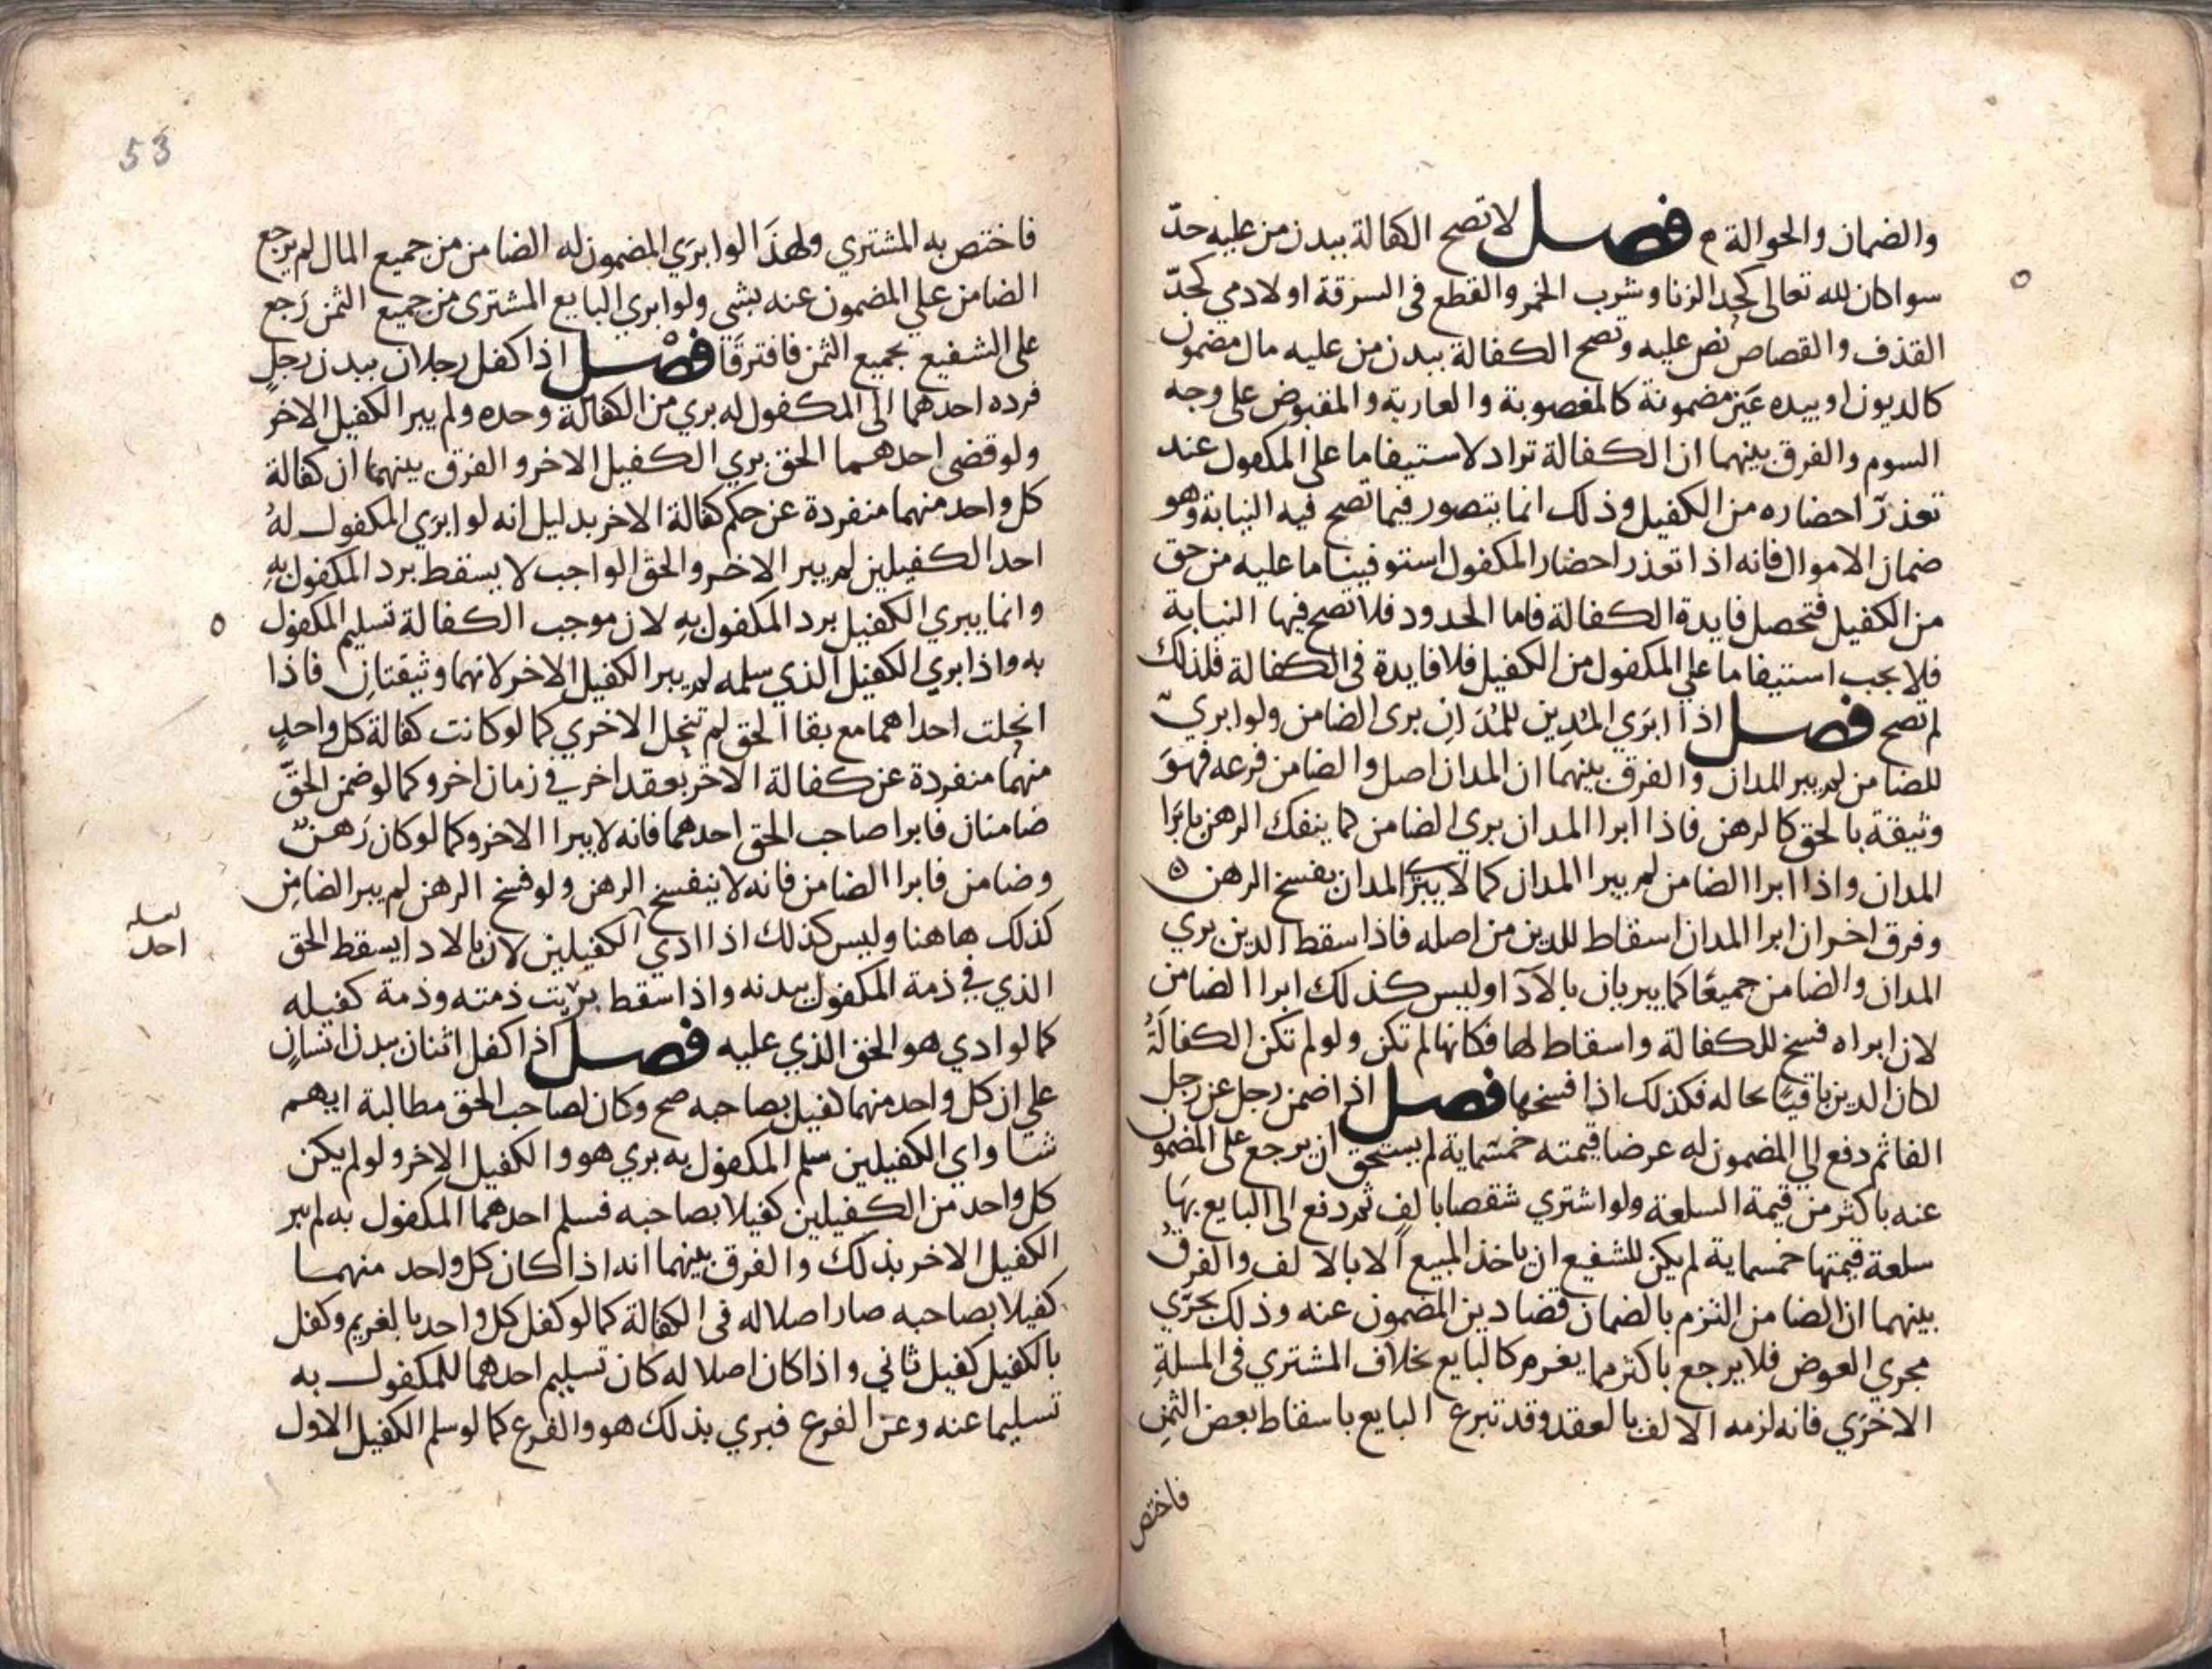 والضمان والحوالة م فصل لا تصح الكفالة ببدن من عليه حدّ
سوا كان لله تعالى كحد الزنا وشرب الخمر والقطع فى السرقة او لادمي كحدّ
القذف والقصاص نص عليه وتصح الكفالة ببدن من عليه مال مضمون
كالديون او بيده عين مضمونة كالمغصوبة والعارية والمقبوض على وجه
السوم والفرق بينهما ان الكفالة تراد لاستيفا ما على المكفول عند
تعذر احضاره من الكفيل وذلك انما يتصور فيما تصح فيه النيابة وهو
ضمان الاموال فانه اذا تعذر احضار المكفول استوفينا ما عليه من حق
من الكفيل فتحصل فايدة الكفالة فاما الحدود فلا تصح فيها النيابة
فلا يجب استيفا ما علي المكفول من الكفيل فلا فايدة فى الكفالة فلذلك
لم تصح فصل اذا ابرَي المُدِين للمُدَانِ برى الضامن ولو ابرى
للضامن لم يبر المدان والفرق بينهما ان المدان اصل والضامن فرعه فهوَ
وثيقة بالحق كالرهن فاذا ابرا المدان بري الضامن كما ينفك الرهن بابرَا
المدان واذا ابرا الضامن لم يبرا المدان كما لا يبرَا المدان بفسخ الرهن ٥
وفرق اخر ان ابرا المدان اسقاط للدين من اصله فاذا سقط الدين بري
المدان والضامن جميعًا كما يبريان بالآدا وليس كذلك ابرا الضامن
لان ابراه فسخ للكفالة واسقاط لها فكانها لم تكن ولو لم تكن الكفالَةُ
لكان الدين باقيًا بحاله فكذلك اذا فسخها فصل اذا ضمن رجل عن رجل
الفا ثم دفع الي المضمون له عرضا قيمته خمسماية لم يستحق ان يرجع على المضمون
عنه باكثر من قيمة السلعة ولو اشتري شقصا بالفٍ ثم دفع الى البايع بهَا
سلعة قيمتها خمسماية لم يكن للشفيع ان ياخذ المبيع الا بالالف والفرق
بينهما ان الضامن التزم بالضمان قضا دين المضمون عنه وذلك يجرَي
مجري العوض فلا يرجع باكثر مما يغرم كالبايع بخلاف المشتري فى المسلةِ
الاخرَي فانه لزمه الالف بالعقد وقد تبرع البايع باسقاط بعض الثمنِ
فاختص
53
فاختص به المشتري ولهذَا لو ابرَي المضمون له الضامن من جميع المال لم يرجع
الضامن علي المضمون عنه بشي ولو ابري البايع المشترى من جميع الثمن رَجع
على الشفيع بجميع الثمن فافترقَا فصْل اذا كفل رجلان ببدن رجلٍ
فرده احدهما الى المكفول له بري من الكفالة وحده ولم يبر الكفيل الاخر
ولو قضى احدهما الحق بري الكفيل الاخر والفرق بينهما ان كفالة
كل واحد منهما منفردة عن حكم كفالة الاخر بدليل انه لو ابرَي المكفول لهُ
احد الكفيلين لم يبر الاخر والحق الواجب لا يسقط برد المكفول بهِ
وانما يبري الكفيل برد المكفول بهِ لان موجب الكفالة تسليم المكفول
به واذا بري الكفيل الذي سلمه لم يبر الكفيل الاخر لانهما وثيقتانِ فاذا
انحلت احداهما مع بقا الحق لم تنحل الاخري كما لو كانت كفالة كل واحدٍ
منهما منفردة عن كفالة الاخر بعقد اخر في زمان اخر وكما لو ضمن الحقَّ
ضامنان فابرا صاحب الحق احدهما فانه لا يبرا الاخر وكما لو كان رَهنٌ
وضامن فابرا الضامن فانه لا ينفسخ الرهن ولو فسخ الرهن لم يبر الضامِن
كذلك هاهنا وليس كذلك اذا ادي الكفيلين لان بالادا يسقط الحق
لعله
احد
الذي في ذمة المكفول ببدنه واذا سقط بريت ذمته وذمة كفيله
كما لو ادي هو الحق الذي عليه فصل اذا كفل اثنان ببدن انسانٍ
علي ان كل واحد منهما كفيل بصاحبه صح وكان لصاحب الحق مطالبة ايهم
شا واي الكفيلين سلم المكفول به بري هو والكفيل الاخر ولو لم يكن
كل واحد من الكفيلين كفيلا بصاحبه فسلم احدهما المكفول به لم يبر
الكفيل الاخر بذلك والفرق بينهما انه اذا كان كل واحد منهما
كفيلا بصاحبه صار اصلا له فى الكفالة كما لو كفل كل واحد بالغريم وكفل
بالكفيل كفيل ثاني واذا كان اصلا له كان تسليم احدهما للمكفول به
تسليما عنه وعن الفرع فبري بذلك هو والفرع كما لو سلم الكفيل الاول